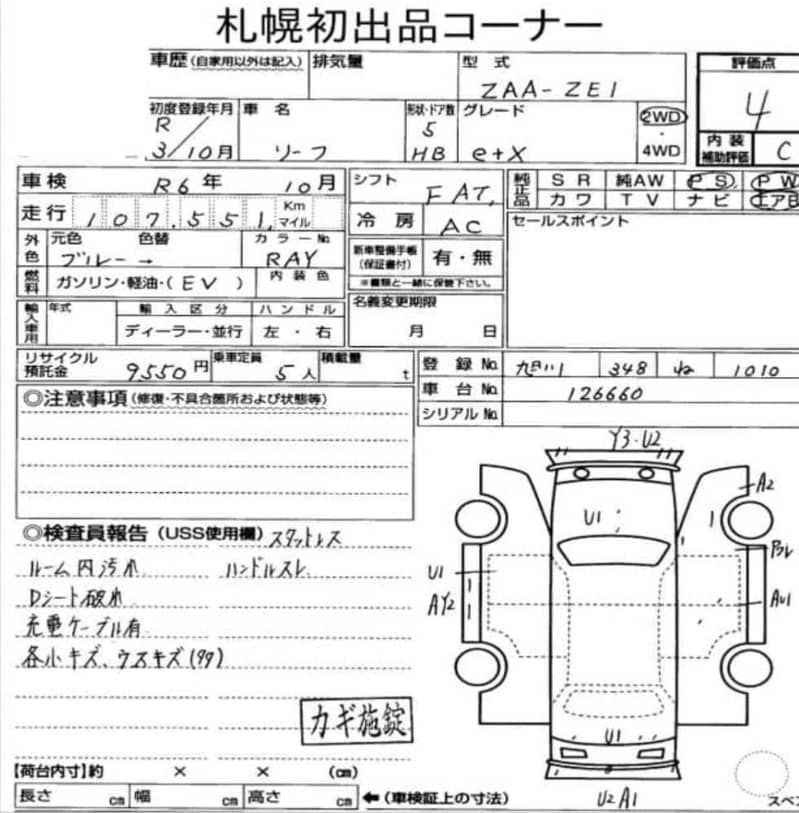 札幌初出品コーナー
車歴(自家用以外は記入) 排気量 型式 ZAA-ZE1 評価点 4
初度登録年月 R3/10月 車名 リーフ 形状・ドア数 5 HB グレード e+X 2WD・4WD 内装補助評価 C
車検 R6年 10月 シフト FAT, 純正品 SR 純AW PS PW
走行 107,551, Km マイル 冷房 AC カワ TV ナビ エアB
外色 元色 ブルー 色替 → カラーNo RAY 新車整備手帳(保証書付) 有・無 セールスポイント
燃料 ガソリン・軽油・(EV) 内装色 ※書類と一緒に保管下さい。
輸入車用 年式 輸入区分 ディーラー・並行 ハンドル 左・右 名義変更期限 月 日
リサイクル預託金 9550円 乗車定員 5人 積載量 t 登録No. 旭川 348 ね 1010
車台No. 126660
シリアルNo.
◎注意事項(修復・不具合箇所および状態等)
◎検査員報告(USS使用欄) スタットレス
ルーム内汚れ ハンドルスレ
Dシート破れ
充電ケーブル有
各小キズ、ウスキズ(99)
カギ施錠
Y3・U2
A2
U1
U1
AY2
AU1
U1
U2 A1
【荷台内寸】約 × × (cm)
長さ cm 幅 cm 高さ cm ←(車検証上の寸法)
スペ